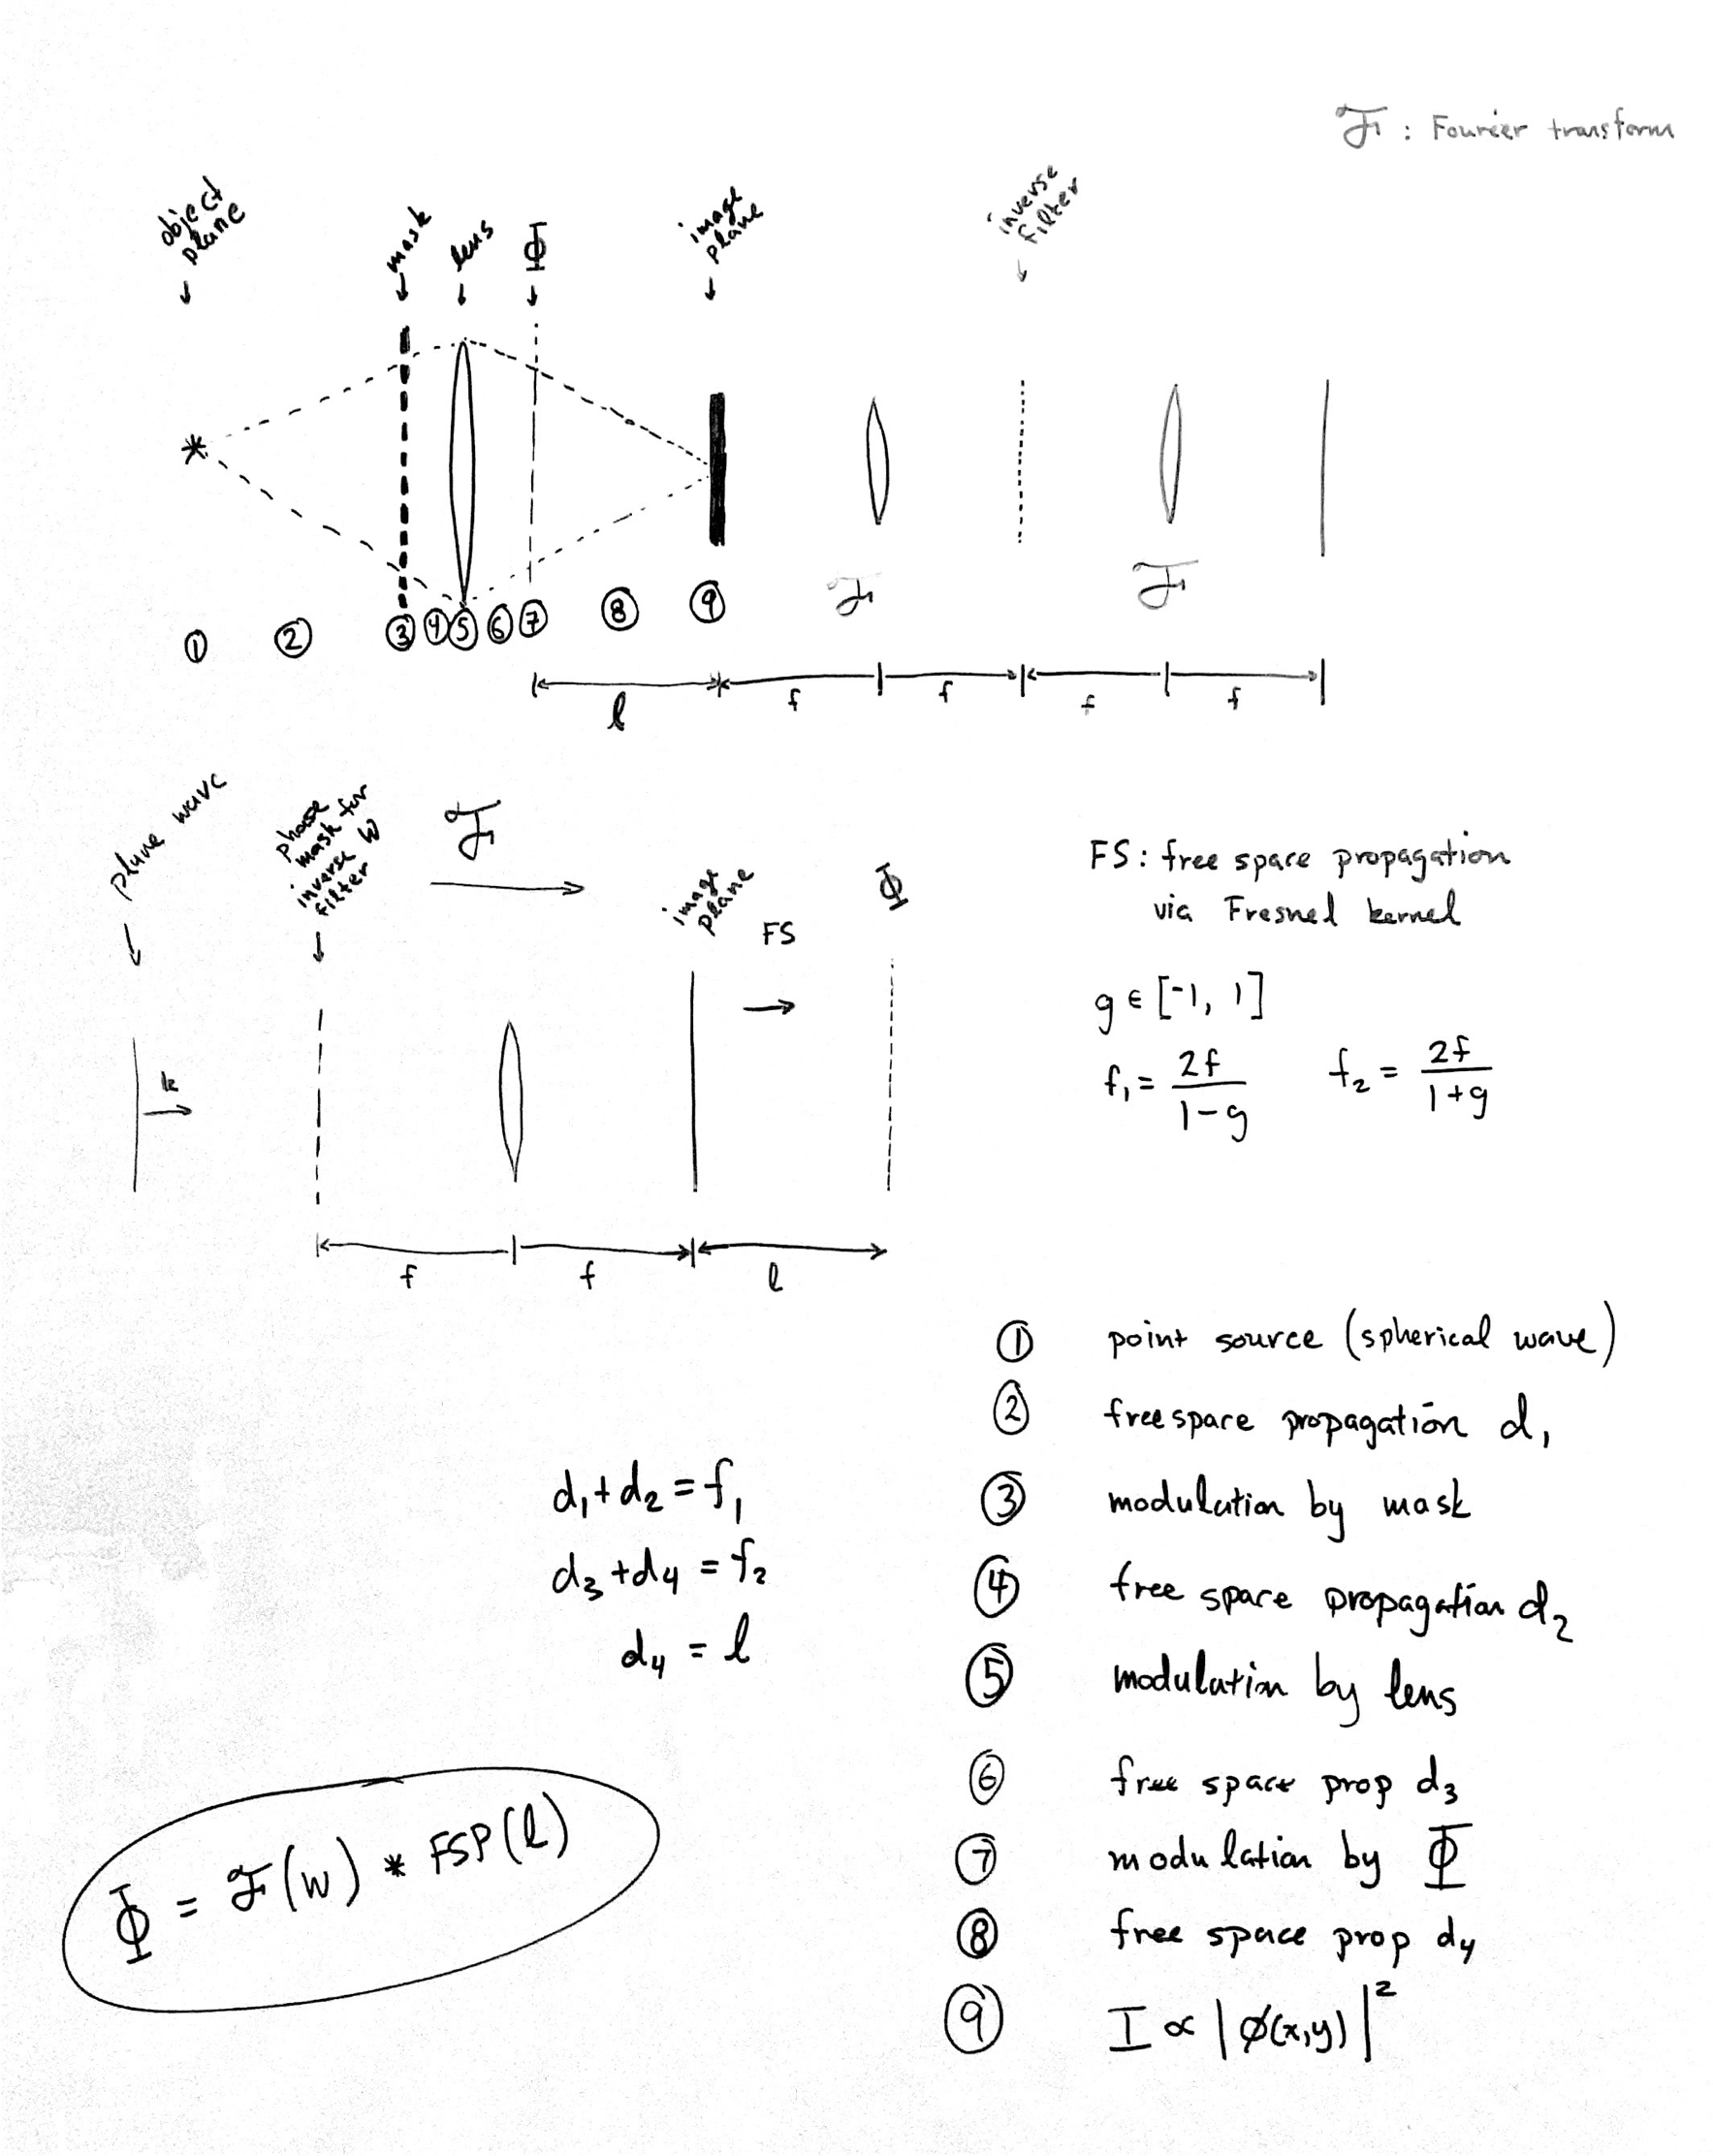 ℱ : Fourier transform
object plane
mask
lens
Φ
image plane
inverse filter
ℱ
ℱ
① ② ③ ④ ⑤ ⑥ ⑦ ⑧ ⑨
l f f f f
plane wave
phase mask for inverse W filter
ℱ
image plane
FS
Φ
k
f f l
FS: free space propagation
via Fresnel kernel
g ∈ [-1, 1]
f₁ = 2f / (1-g) f₂ = 2f / (1+g)
① point source (spherical wave)
② free space propagation d₁
③ modulation by mask
④ free space propagation d₂
⑤ modulation by lens
⑥ free space prop d₃
⑦ modulation by Φ
⑧ free space prop d₄
⑨ I ∝ |ø(x,y)|²
d₁+d₂ = f₁
d₃+d₄ = f₂
d₄ = l
Φ = ℱ(W) * FSP(l)